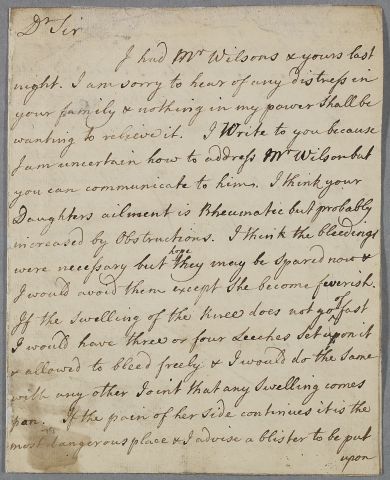 Dr Sir
I had Mr Wilsons & yours last
night. I am sorry to hear of any distress in
your family & nothing in my power shall be
wanting to relieve it. I Write to you because
I am uncertain how to address Mr Wilson but
you can communicate to him. I think your
Daughters ailment is Rheumatic but probably
increased by Obstructions. I think the bleedings
were necessary but I hope they may be spared now &
I would avoid them except She become feverish.
If the swelling of the Knee does not go off fast
I would have three or four Leeches Set upon it
& allowed to bleed freely & I would do the same
with any other Joint that any Swelling comes
pan. If the pain of her side continues it is the
most dangerous place & I advise a blister to be put
upon